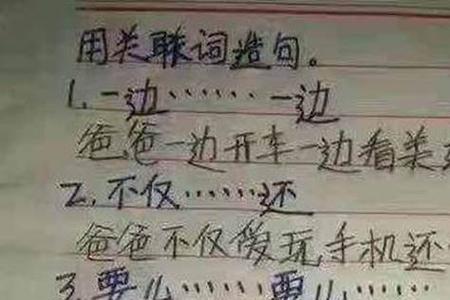 用关联词造句。
1.一边……一边
爸爸一边开车一边看美
2.不仅……还
爸爸不仅爱玩手机还
3.要么……要么……